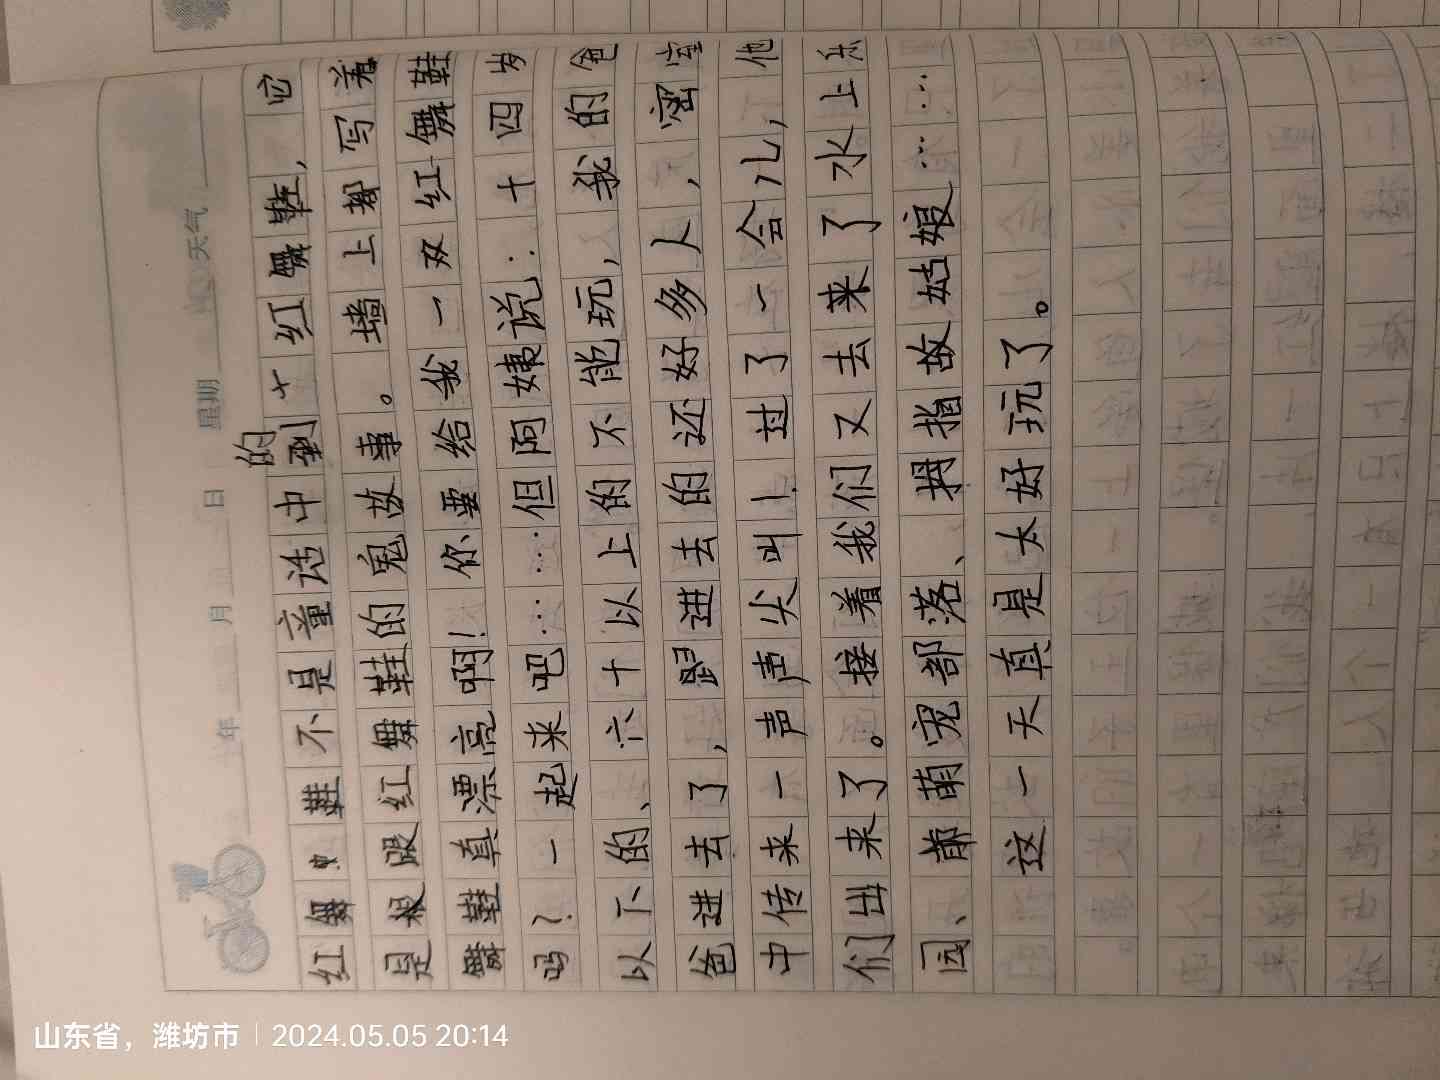 年 月 日 星期 天气
红舞鞋不是童话中的红舞鞋，它
是根跟红舞鞋的鬼故事。墙上都写着
舞鞋真漂亮啊！你要给我一双红舞鞋
吗？一起来吧……但阿姨说：十四岁
以下的、六十以上的不能玩，我的爸
爸进去了，跟进去的还好多人，密室
中传来一声声尖叫！过了一会儿，他
们出来了。接着我们又去来了水上乐
园、萌宠部落、拇指故姑娘……
这一天真是太好玩了。
山东省，潍坊市 2024.05.05 20:14